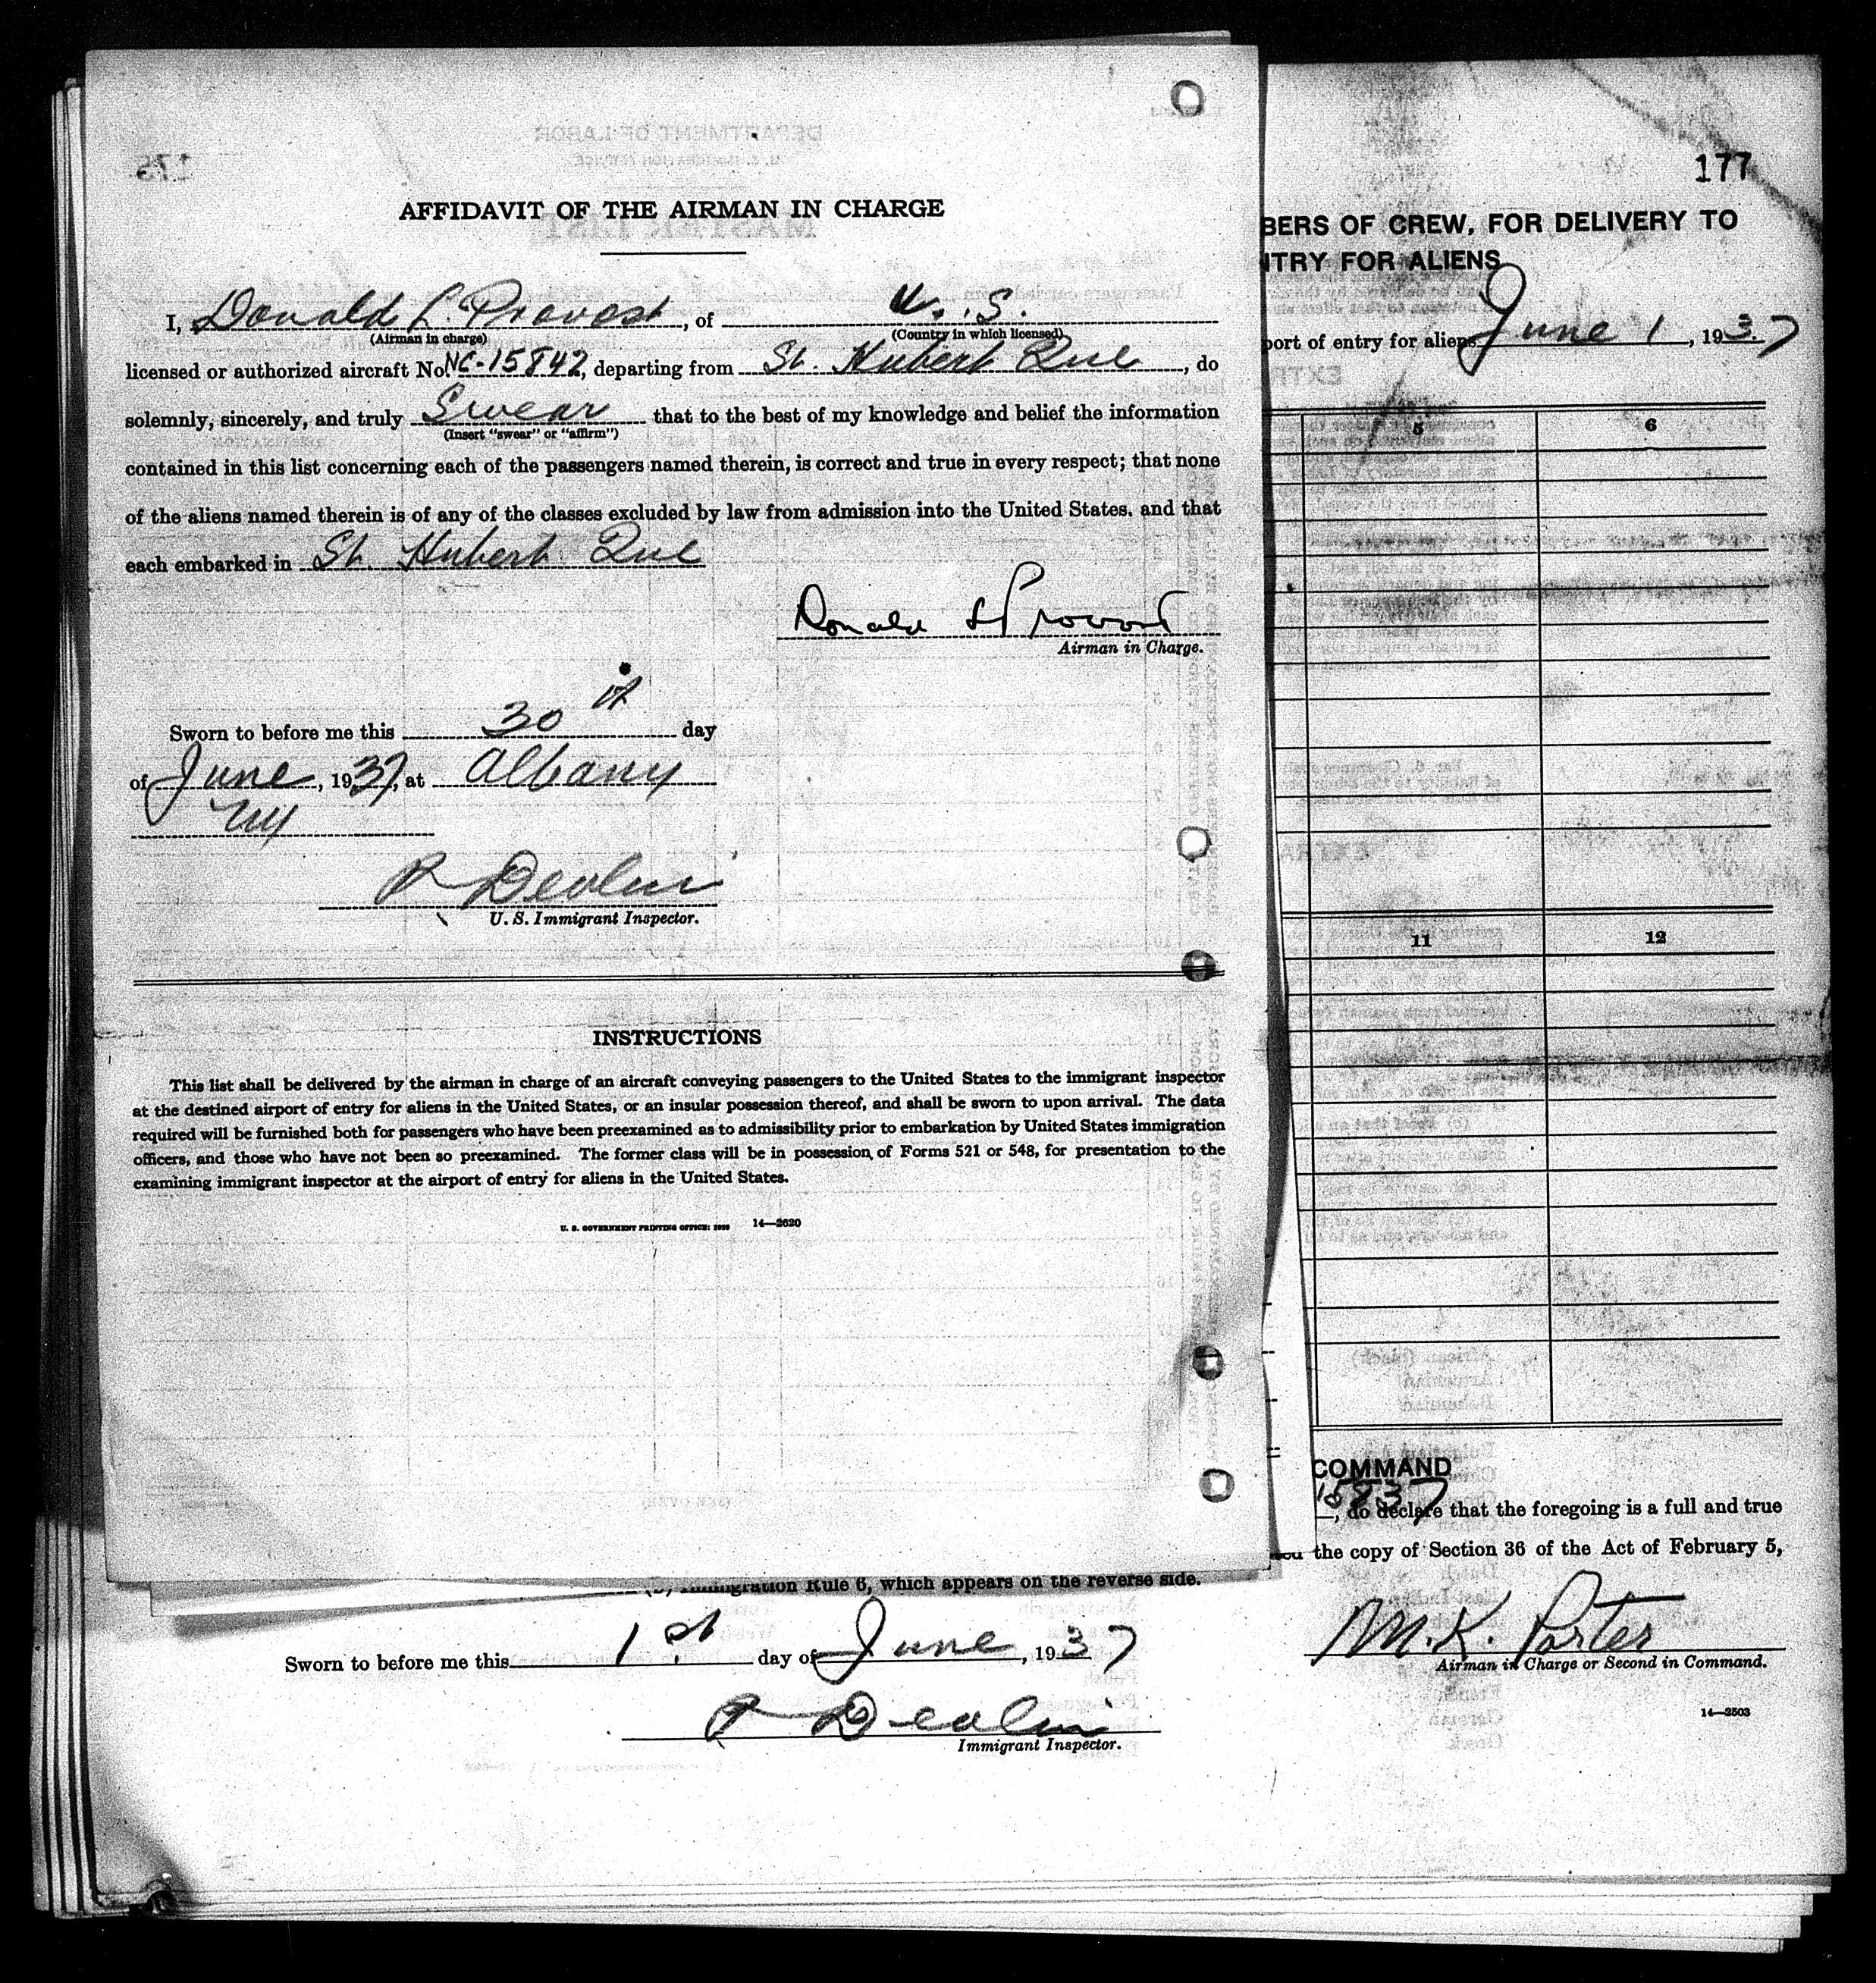 AFFIDAVIT OF THE AIRMAN IN CHARGE
I, Donald L. Provost, of U.S.
(Airman in charge) (Country in which licensed)
licensed or authorized aircraft No. NC-15842, departing from St. Hubert Que, do
solemnly, sincerely, and truly Swear that to the best of my knowledge and belief the information
(Insert "swear" or "affirm")
contained in this list concerning each of the passengers named therein, is correct and true in every respect; that none
of the aliens named therein is of any of the classes excluded by law from admission into the United States, and that
each embarked in St. Hubert Que
Donald L Provost
Airman in Charge.
Sworn to before me this 30th day
of June, 1937, at Albany
NY
R Devlin
U. S. Immigrant Inspector.
INSTRUCTIONS
This list shall be delivered by the airman in charge of an aircraft conveying passengers to the United States to the immigrant inspector
at the destined airport of entry for aliens in the United States, or an insular possession thereof, and shall be sworn to upon arrival. The data
required will be furnished both for passengers who have been preexamined as to admissibility prior to embarkation by United States immigration
officers, and those who have not been so preexamined. The former class will be in possession of Forms 521 or 548, for presentation to the
examining immigrant inspector at the airport of entry for aliens in the United States.
U. S. GOVERNMENT PRINTING OFFICE: 14—2620
177
BERS OF CREW, FOR DELIVERY TO
NTRY FOR ALIENS
port of entry for aliens June 1, 1937
5 6
11 12
COMMAND
15837
, do declare that the foregoing is a full and true
the copy of Section 36 of the Act of February 5,
Immigration Rule 6, which appears on the reverse side.
M.K. Porter
Airman in Charge or Second in Command.
Sworn to before me this 1st day of June, 1937
R Devlin
Immigrant Inspector.
14—2503